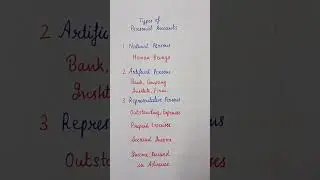 Types of
Personal Accounts
1 Natural Persons
Human Beings
2 Artificial Persons
Bank, Company
Institute, Firm
3 Representative Persons
Outstanding Expenses
Prepaid Expenses
Accrued Income
Income Received
in Advance
2 Artific
Bank,
Instit
3 Repres
Outst